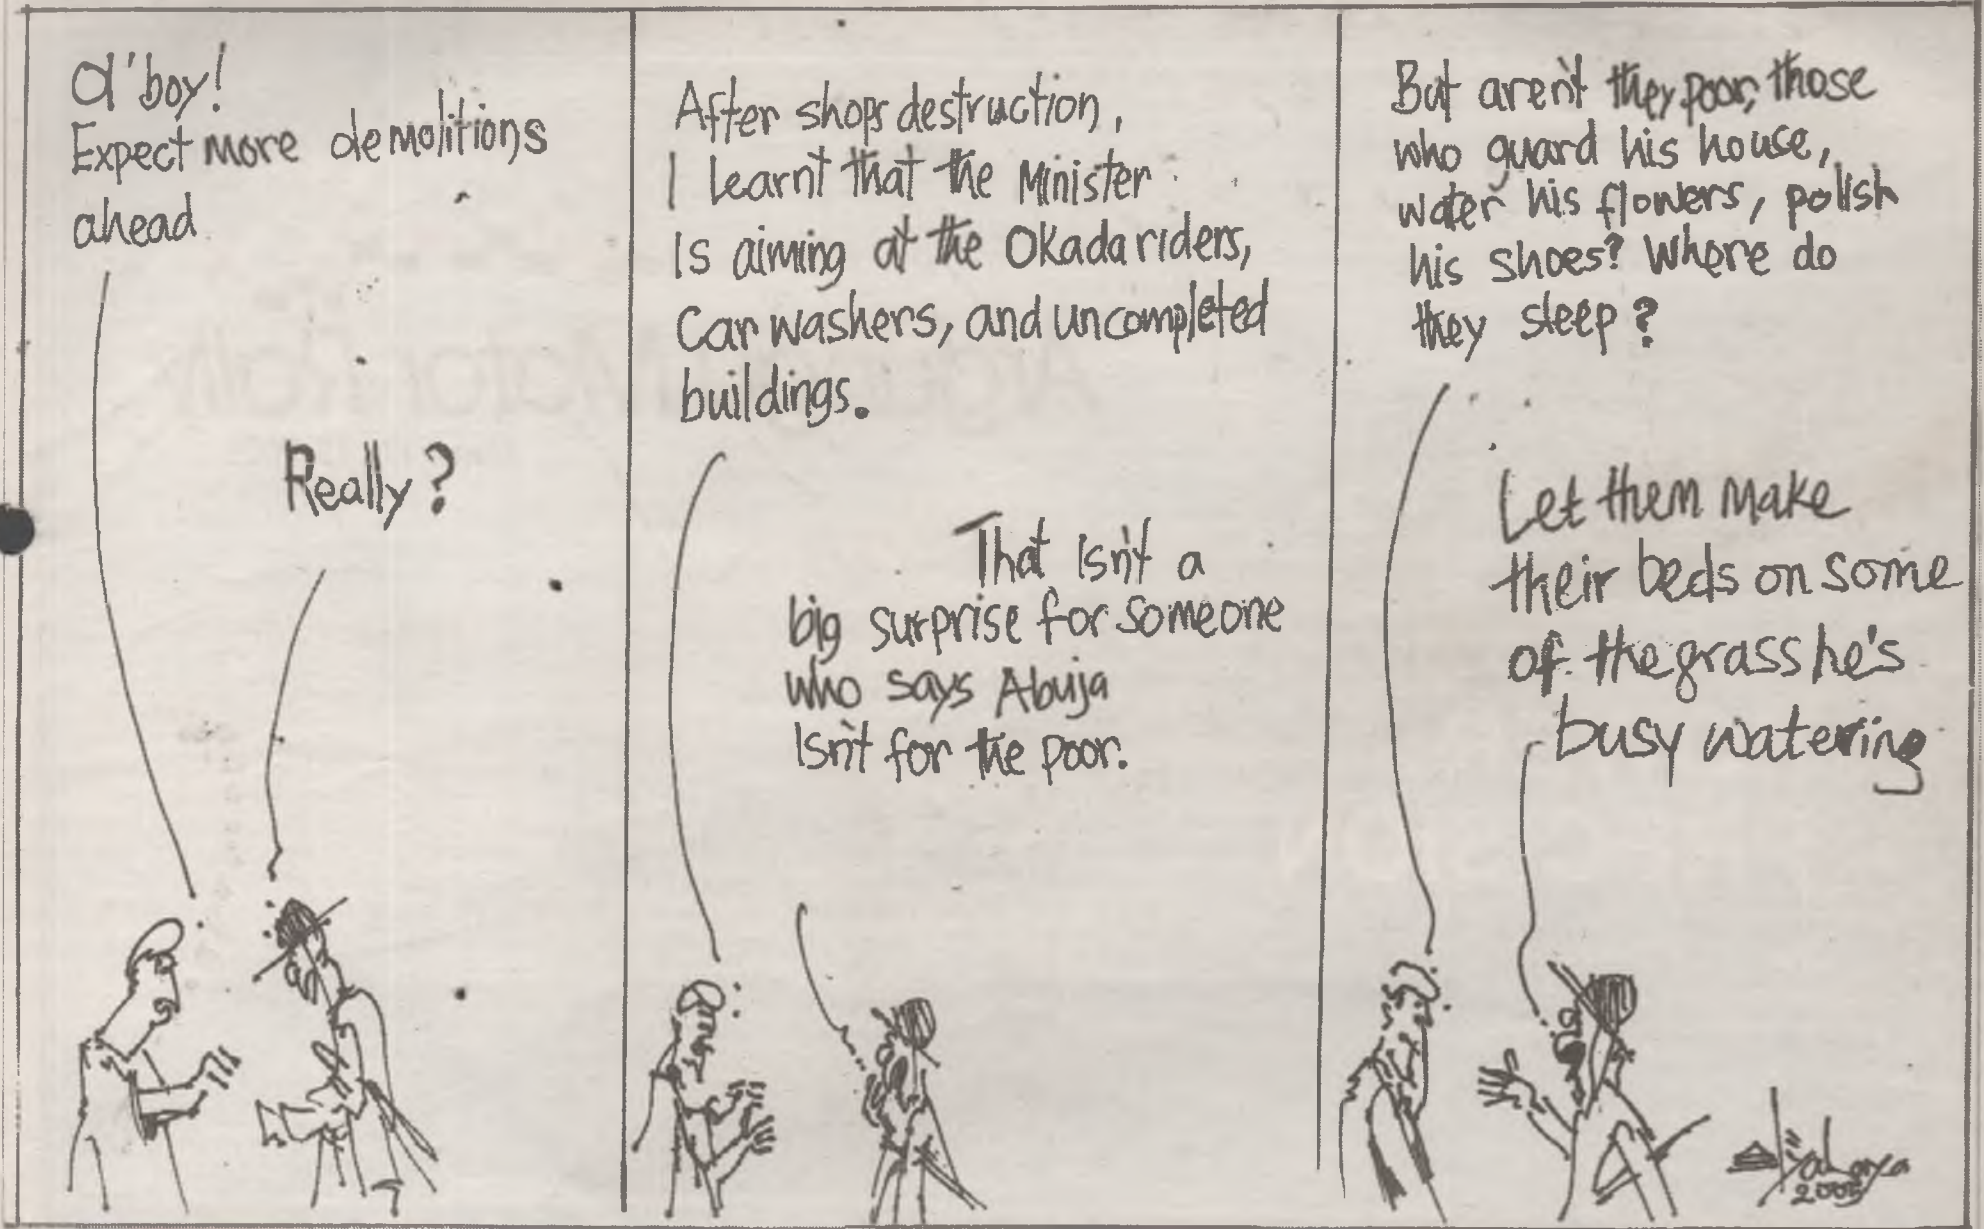 O'boy!
Expect more demolitions
ahead
Really?
After shops destruction,
I learnt that the Minister
Is aiming at the Okada riders,
Car washers, and uncompleted
buildings.
That Isn't a
big surprise for someone
who says Abuja
Isn't for the poor.
But aren't they poor, those
who guard his house,
water his flowers, polish
his shoes? Where do
they sleep?
Let them make
their beds on some
of the grass he's
busy watering